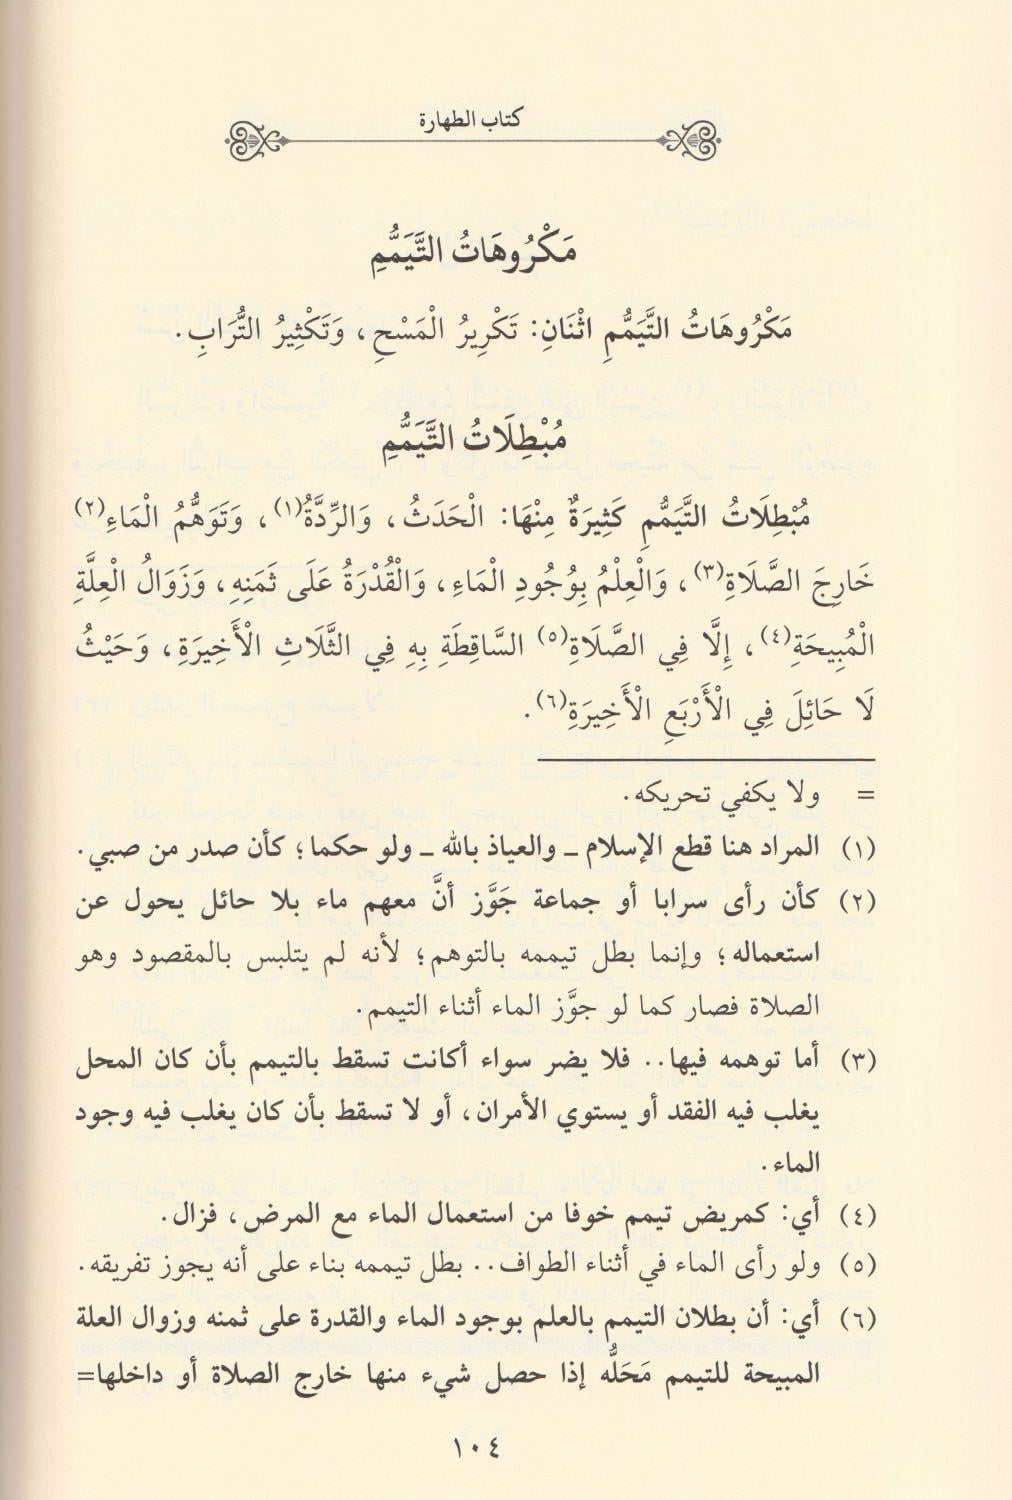 كتاب الطهارة
مَكْرُوهَاتُ التَّيَمُّمِ
مَكْرُوهَاتُ التَّيَمُّمِ اثْنَانِ: تَكْرِيرُ الْمَسْحِ، وَتَكْثِيرُ التُّرَابِ.
مُبْطِلَاتُ التَّيَمُّمِ
مُبْطِلَاتُ التَّيَمُّمِ كَثِيرَةٌ مِنْهَا: الْحَدَثُ، وَالرِّدَّةُ(١)، وَتَوَهُّمُ الْمَاءِ(٢)
خَارِجَ الصَّلَاةِ(٣)، وَالْعِلْمُ بِوُجُودِ الْمَاءِ، وَالْقُدْرَةُ عَلَى ثَمَنِهِ، وَزَوَالُ الْعِلَّةِ
الْمُبِيحَةِ(٤)، إِلَّا فِي الصَّلَاةِ(٥) السَّاقِطَةِ بِهِ فِي الثَّلَاثِ الْأَخِيرَةِ، وَحَيْثُ
لَا حَائِلَ فِي الْأَرْبَعِ الْأَخِيرَةِ(٦).
= ولا يكفي تحريكه.
(١) المراد هنا قطع الإسلام ـ والعياذ بالله ـ ولو حكما؛ كأن صدر من صبي.
(٢) كأن رأى سرابا أو جماعة جَوَّز أنَّ معهم ماء بلا حائل يحول عن
استعماله؛ وإنما بطل تيممه بالتوهم؛ لأنه لم يتلبس بالمقصود وهو
الصلاة فصار كما لو جوَّز الماء أثناء التيمم.
(٣) أما توهمه فيها.. فلا يضر سواء أكانت تسقط بالتيمم بأن كان المحل
يغلب فيه الفقد أو يستوي الأمران، أو لا تسقط بأن كان يغلب فيه وجود
الماء.
(٤) أي: كمريض تيمم خوفا من استعمال الماء مع المرض، فزال.
(٥) ولو رأى الماء في أثناء الطواف.. بطل تيممه بناء على أنه يجوز تفريقه.
(٦) أي: أن بطلان التيمم بالعلم بوجود الماء والقدرة على ثمنه وزوال العلة
المبيحة للتيمم مَحَلُّه إذا حصل شيء منها خارج الصلاة أو داخلها=
١٠٤